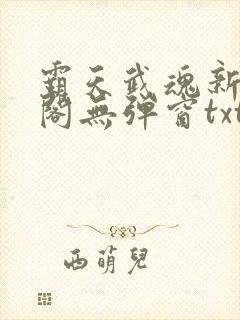 霸天武魂新
閣無彈窗txt
西萌兒